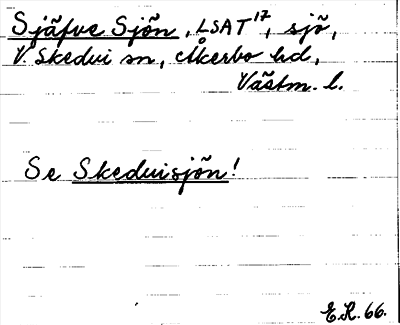 Sjäfve Sjön, LSAT 17, sjö,
V. Skedvi sn, Åkerbo hd,
Västm. l.
Se Skedvisjön!
E.R. 66.